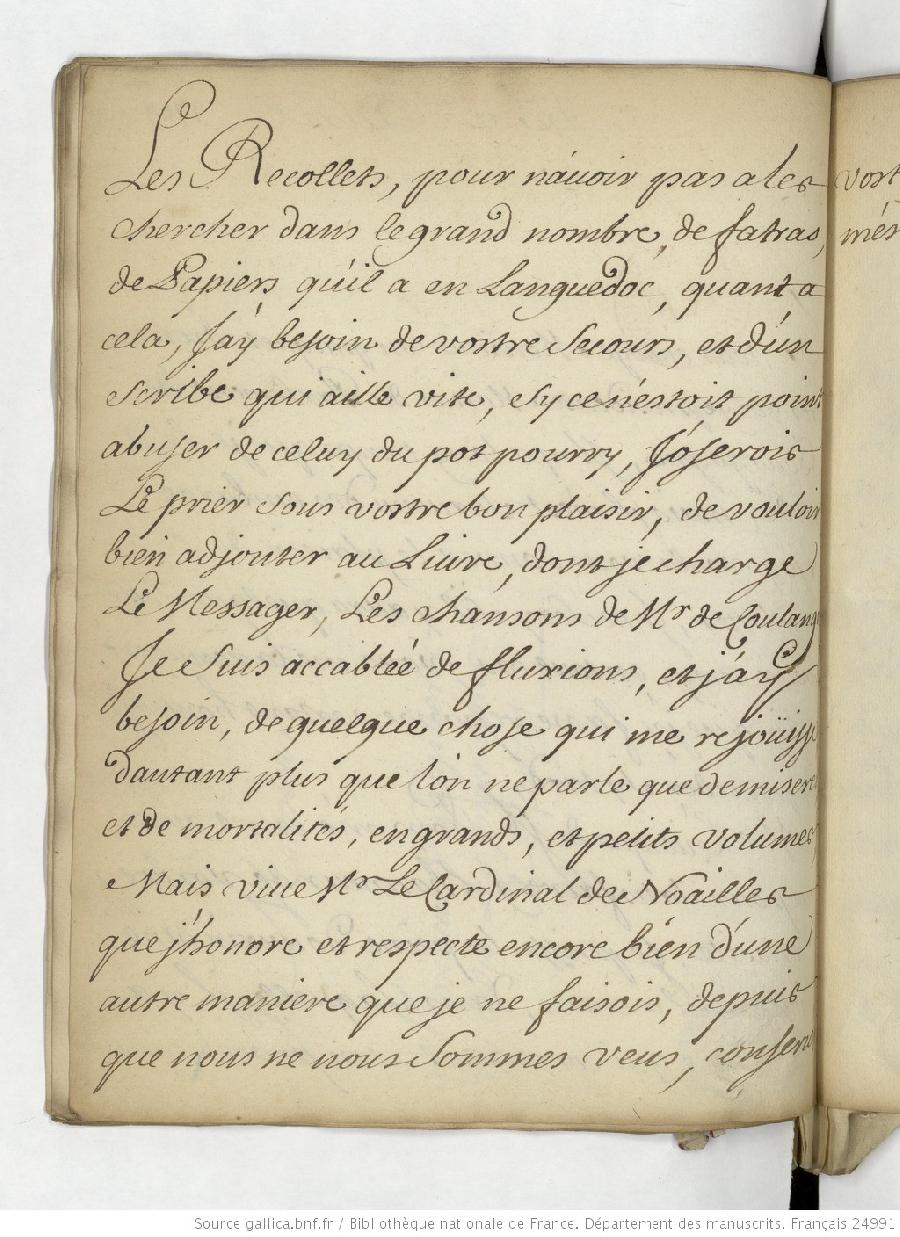 Les Recollets, pour n'avoir pas a les
chercher dans le grand nombre, de fatras,
de Papiers qu'il a en Languedoc, quant a
cela, J'ay besoin de vostre Secours, et d'un
scribe qui aille vite, sy ce n'estoit point
abuser de celuy du pot pourry, J'oserois
Le prier sous vostre bon plaisir, de vouloir
bien adjouter au Livre, dont je charge
Le Messager, Les chansons de Mr de Coulang
Je Suis accablée de fluxions, et j'ay
besoin, de quelque chose qui me rejoüisse
dautant plus que l'on ne parle que de misere
et de mortalités, en grands, et petits volumes,
Mais vive Mr Le Cardinal de Noailles
que j'honore et respecte encore bien d'une
autre maniere que je ne faisois, depuis
que nous ne nous Sommes veus, conserv
vost
mér
Source gallica.bnf.fr / Bibliothèque nationale de France. Département des manuscrits. Français 24991